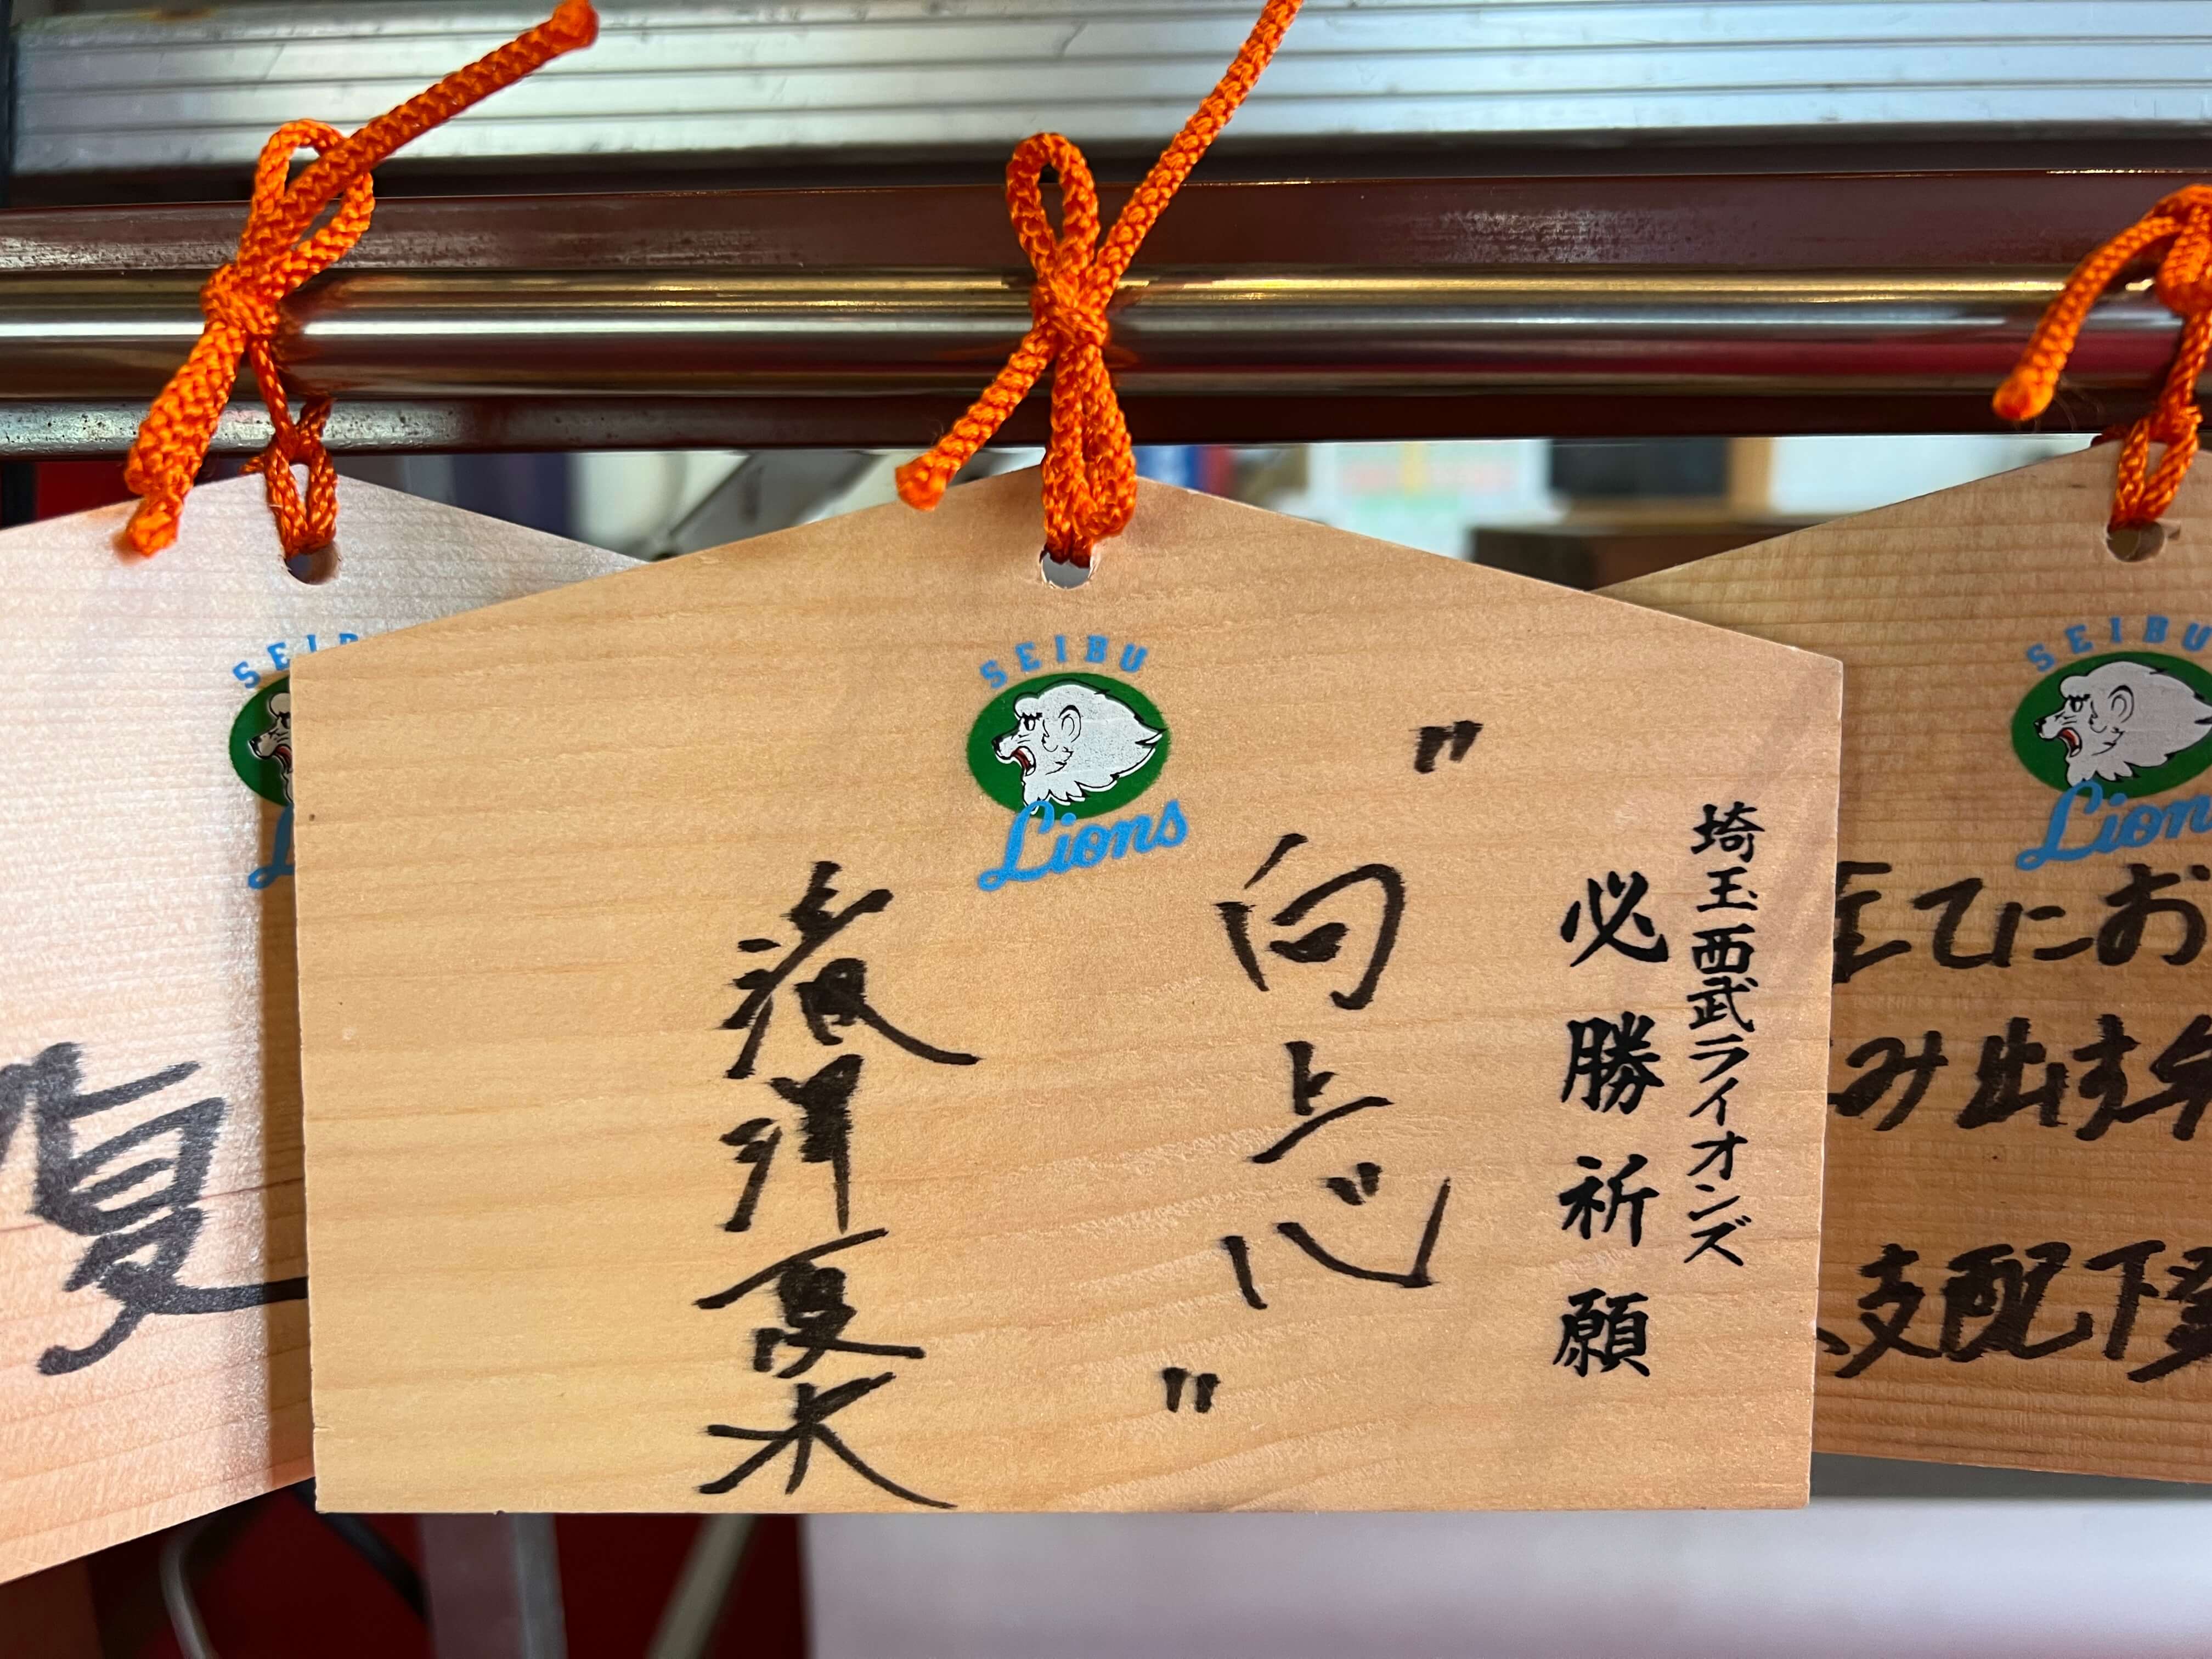 SEIBU
Lions
埼玉西武ライオンズ
必勝祈願
〃向上心〃
滝澤夏央
SEIBU
Lion
てにお
み出す
支配下
SEI
L
復